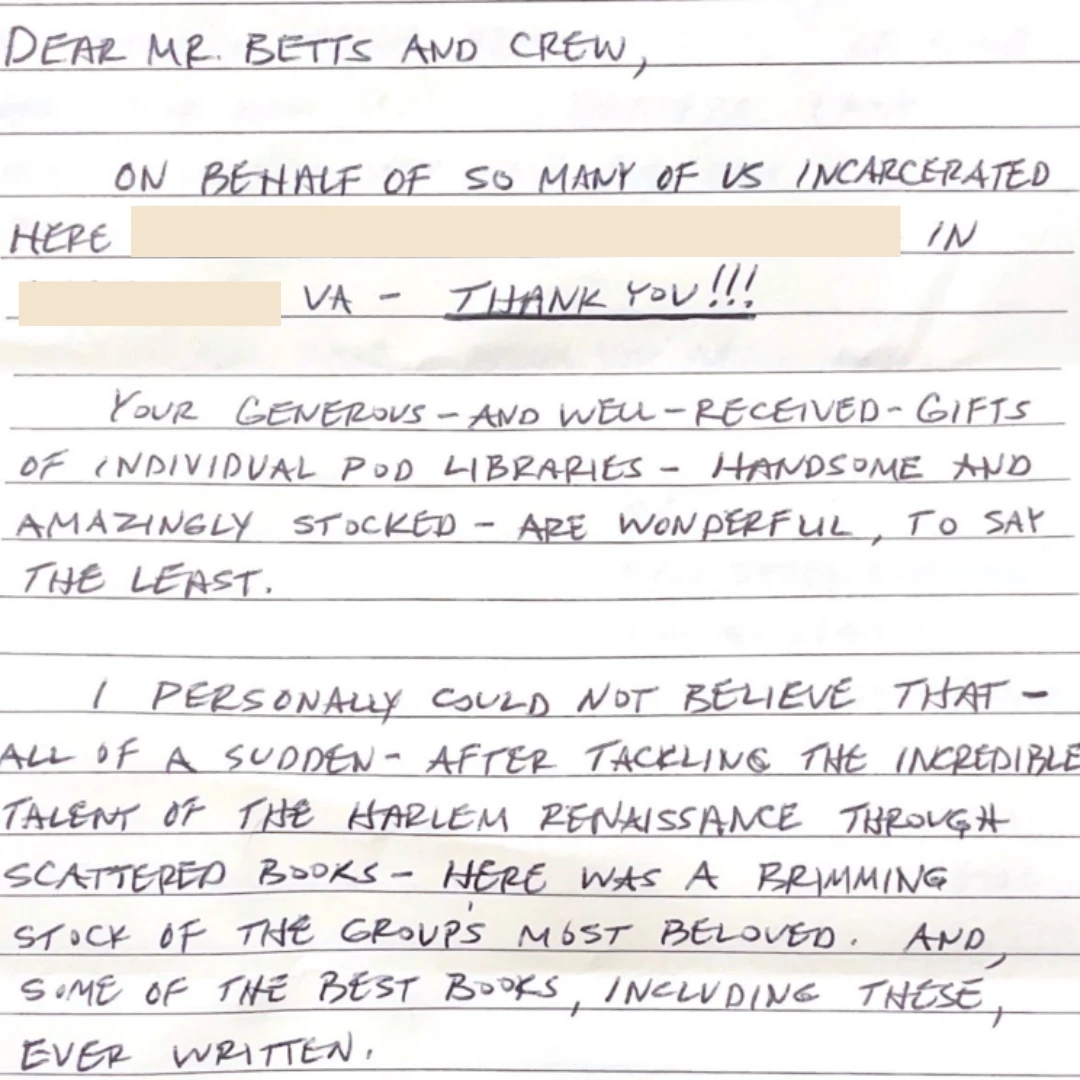 DEAR MR. BETTS AND CREW,
ON BEHALF OF SO MANY OF US INCARCERATED
HERE IN
VA - THANK YOU!!!
YOUR GENEROUS - AND WELL - RECEIVED - GIFTS
OF INDIVIDUAL POD LIBRARIES - HANDSOME AND
AMAZINGLY STOCKED - ARE WONDERFUL, TO SAY
THE LEAST.
I PERSONALLY COULD NOT BELIEVE THAT -
ALL OF A SUDDEN - AFTER TACKLING THE INCREDIBLE
TALENT OF THE HARLEM RENAISSANCE THROUGH
SCATTERED BOOKS - HERE WAS A BRIMMING
STOCK OF THE GROUP'S MOST BELOVED. AND,
SOME OF THE BEST BOOKS, INCLUDING THESE,
EVER WRITTEN.